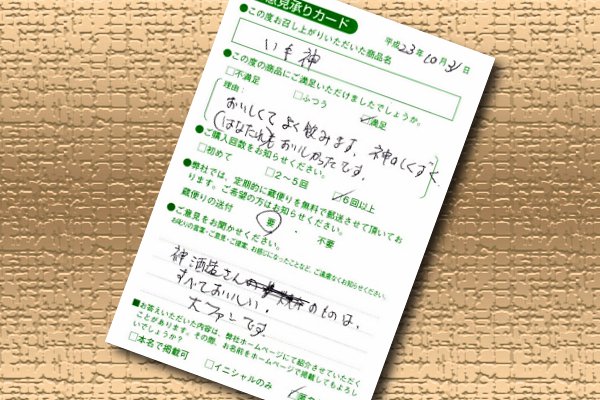 意見承りカード
平成23年10月31日
●この度お召し上がりいただいた商品名
いも神
●この度の商品にご満足いただけましたでしょうか。
□不満足 □ふつう □満足
理由:
おいしくてよく飲みます。神のしくずく、
(はなたれもおいしかったです。)
●ご購入回数をお知らせください。
□初めて □2〜5回 □6回以上
●弊社では、定期的に蔵便りを無料で郵送させて頂いております。ご希望の方はお知らせください。
蔵便りの送付 要 ・ 不要
●ご意見をお聞かせください。
お叱りの言葉・ご意見・ご提案、お感じになったことなど、ご遠慮なくお知らせください。
神酒造さんのものは、
すべておいしい。
大ファンです
■お答えいただいた内容は、弊社ホームページにて紹介させていただく
ことがあります。その際、お名前をホームページで掲載してもよろし
いでしょうか?
□本名で掲載可 □イニシャルのみ